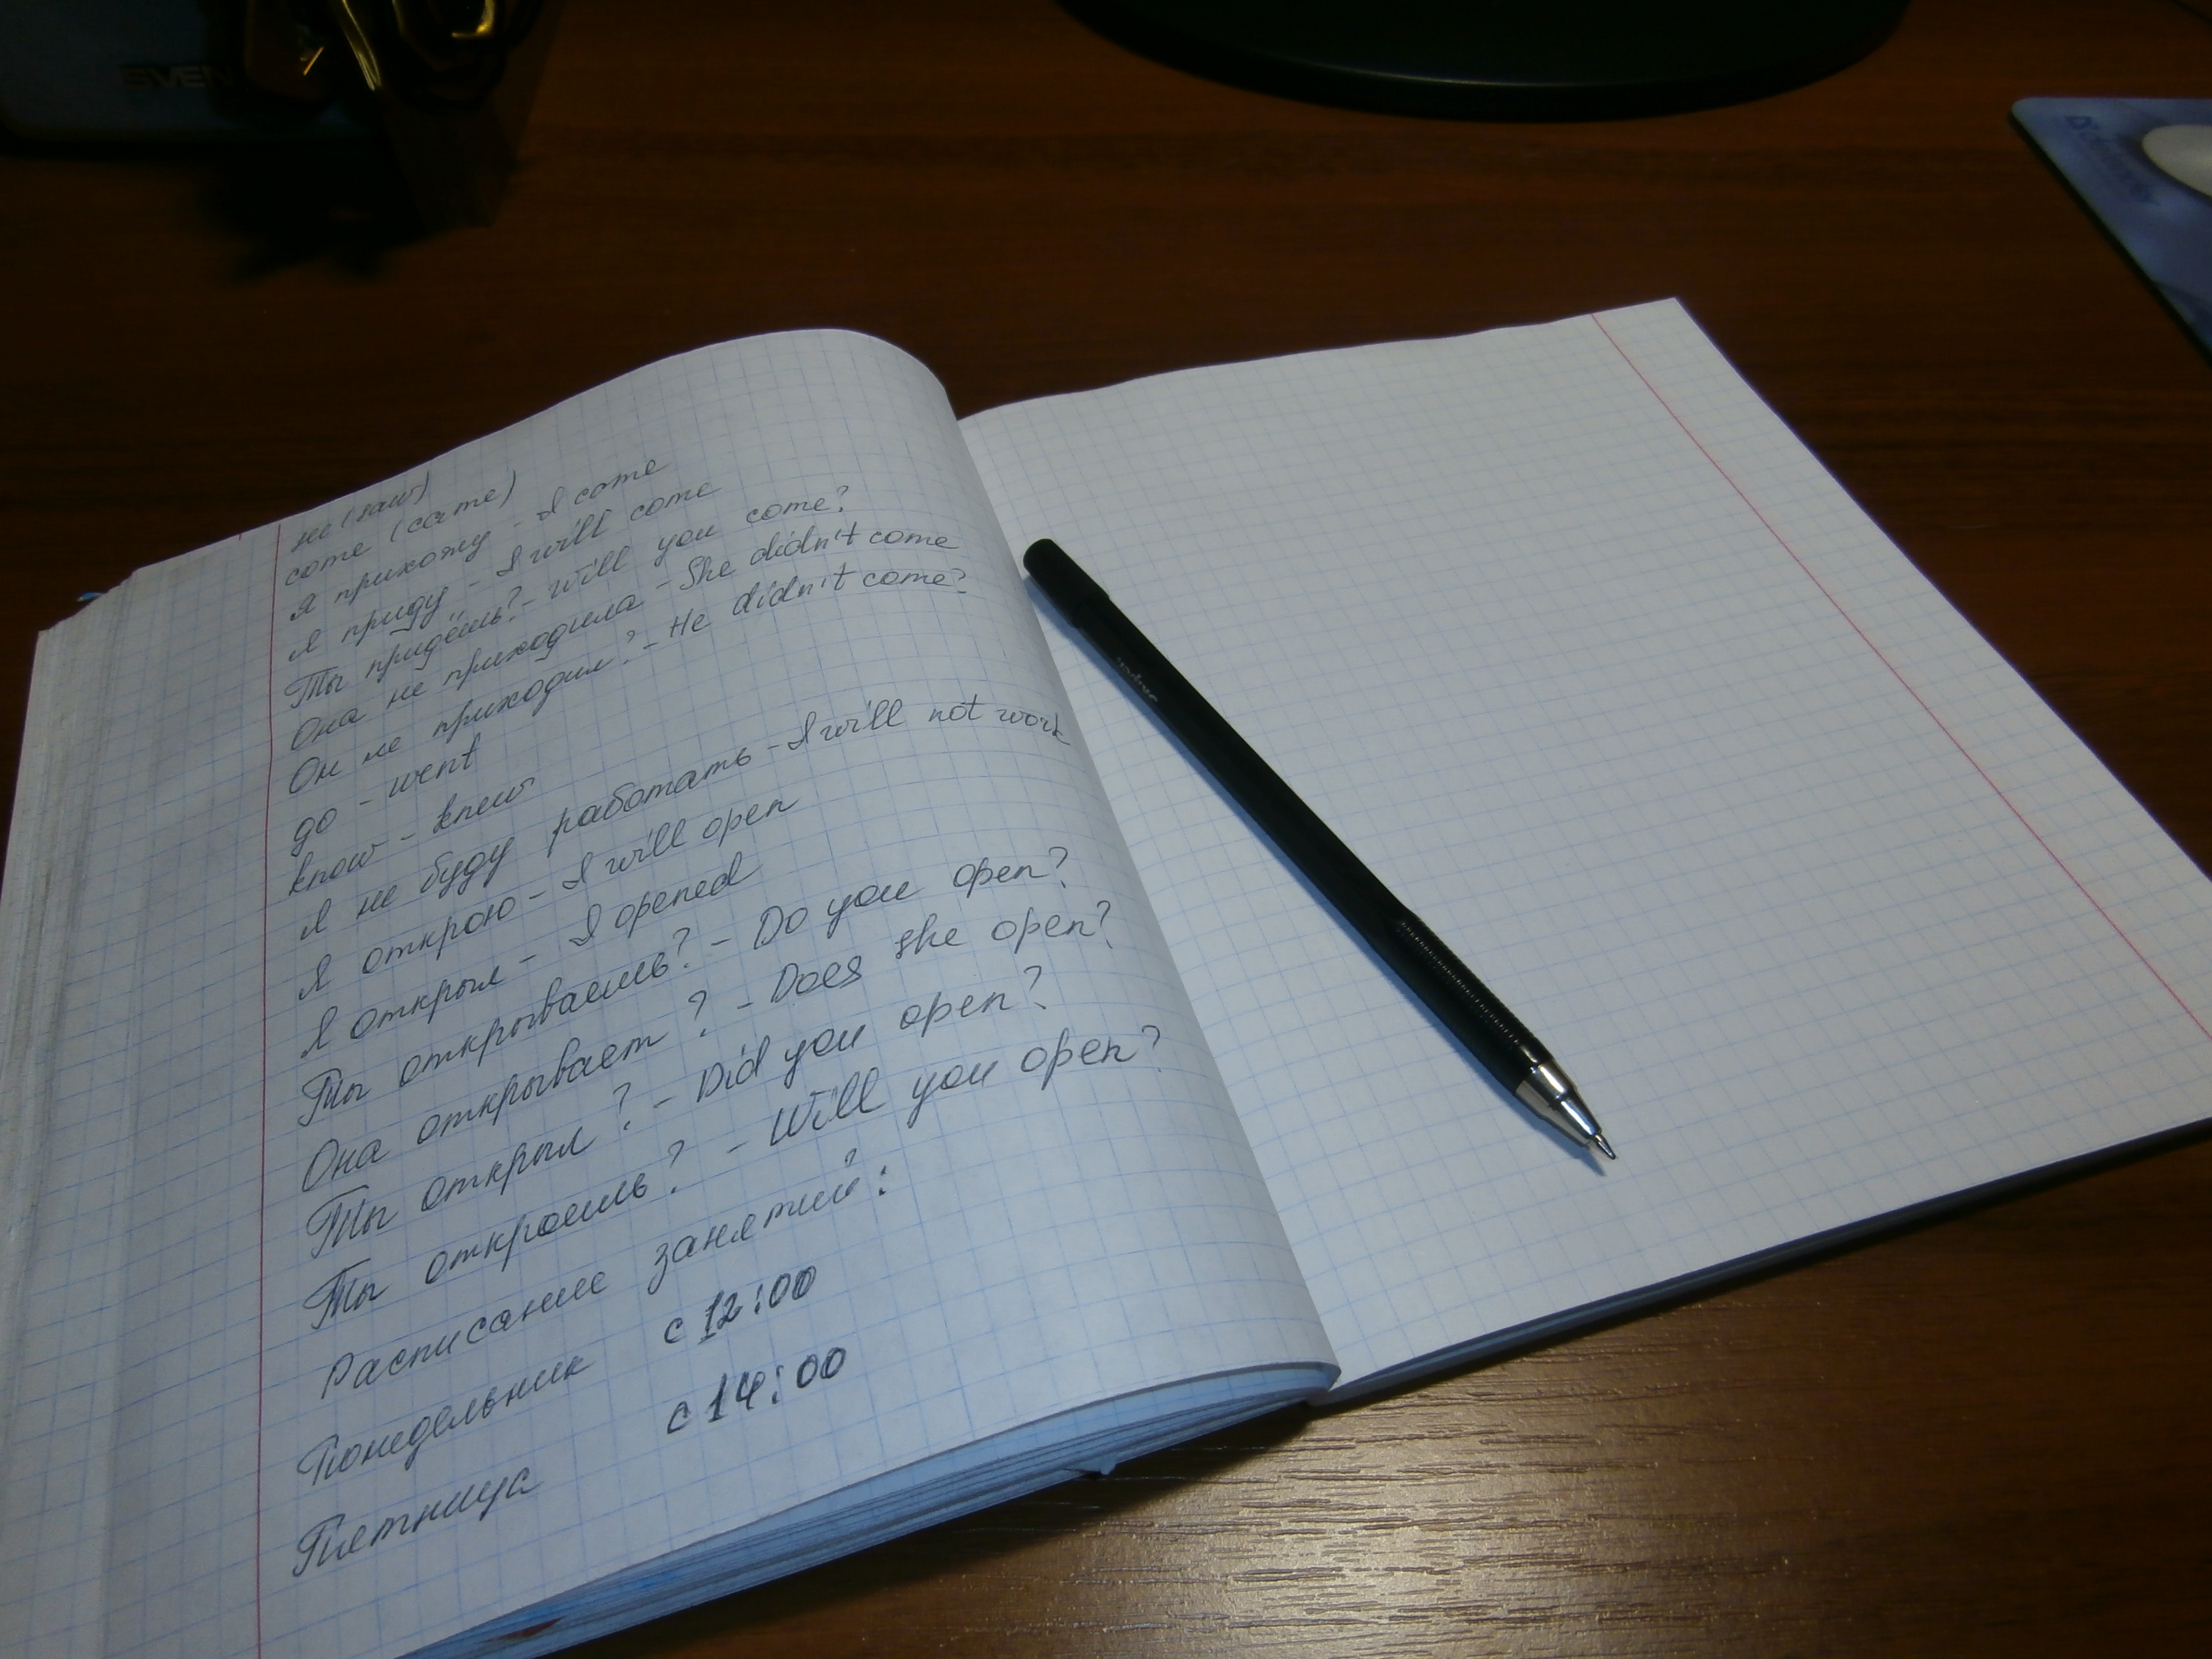 SVEN
Defender
see (saw)
come (came)
Я прихожу - I come
Я приду - I will come
Ты придёшь? - Will you come?
Она не приходила - She didn't come
Он не приходил? - He didn't come?
go - went
know - knew
Я не буду работать - I will not work
Я открою - I will open
Я открыл - I opened
Ты открываешь? - Do you open?
Она открывает ? - Does she open?
Ты открыл ? - Did you open?
Ты откроешь? - Will you open?
Расписание занятий:
Понедельник с 12:00
Пятница с 14:00